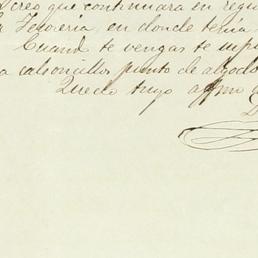 creo que continuara en regu
la Tesoreria en donde tenia
Cuand te vengas te sup
a calsoncillos punto de algodo
Quedo tuyo affmo